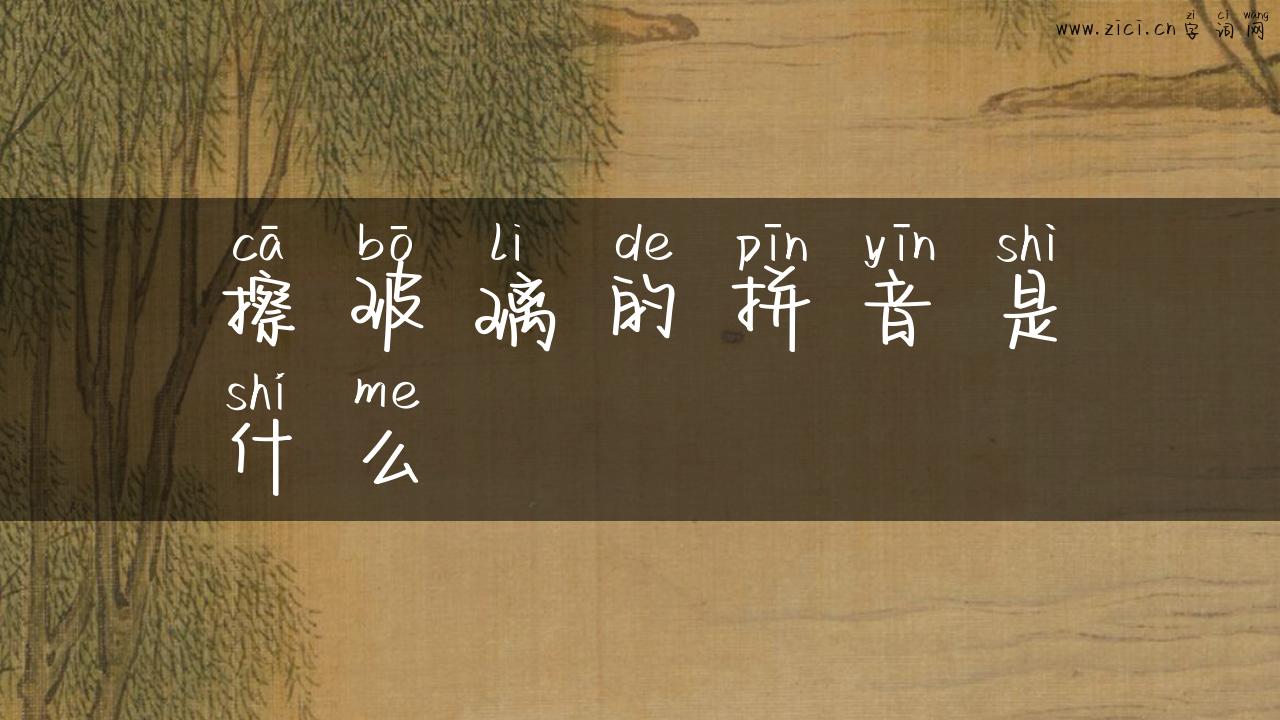 zì cí wǎng
www.zici.cn 字词网
cā bō li de pīn yīn shì
擦玻璃的拼音是
shí me
什么